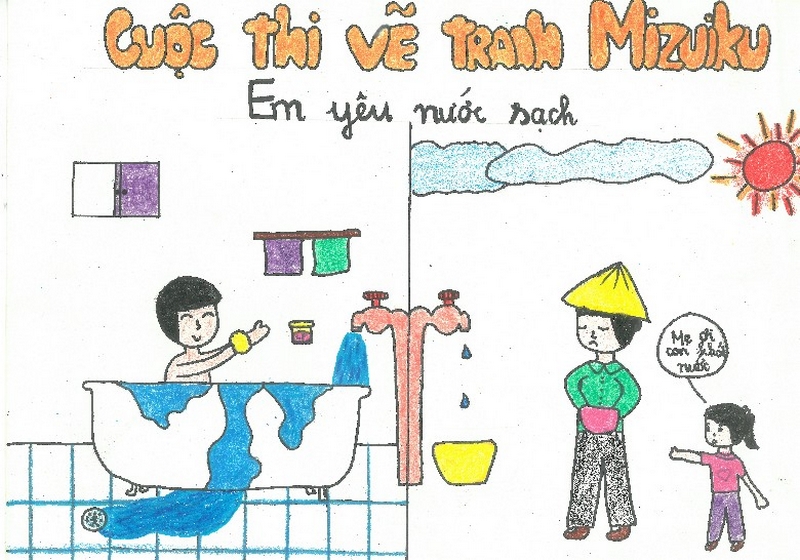 Cuộc thi vẽ tranh Mizuiku
Em yêu nước sạch
Mẹ ơi
con khát
nước